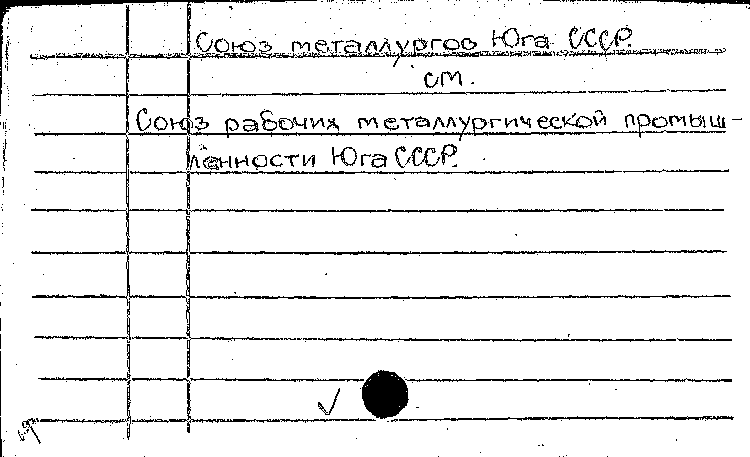 Союз металлургов Юга СССР.
см.
Союз рабочих металлургической промыш-
ленности Юга СССР.